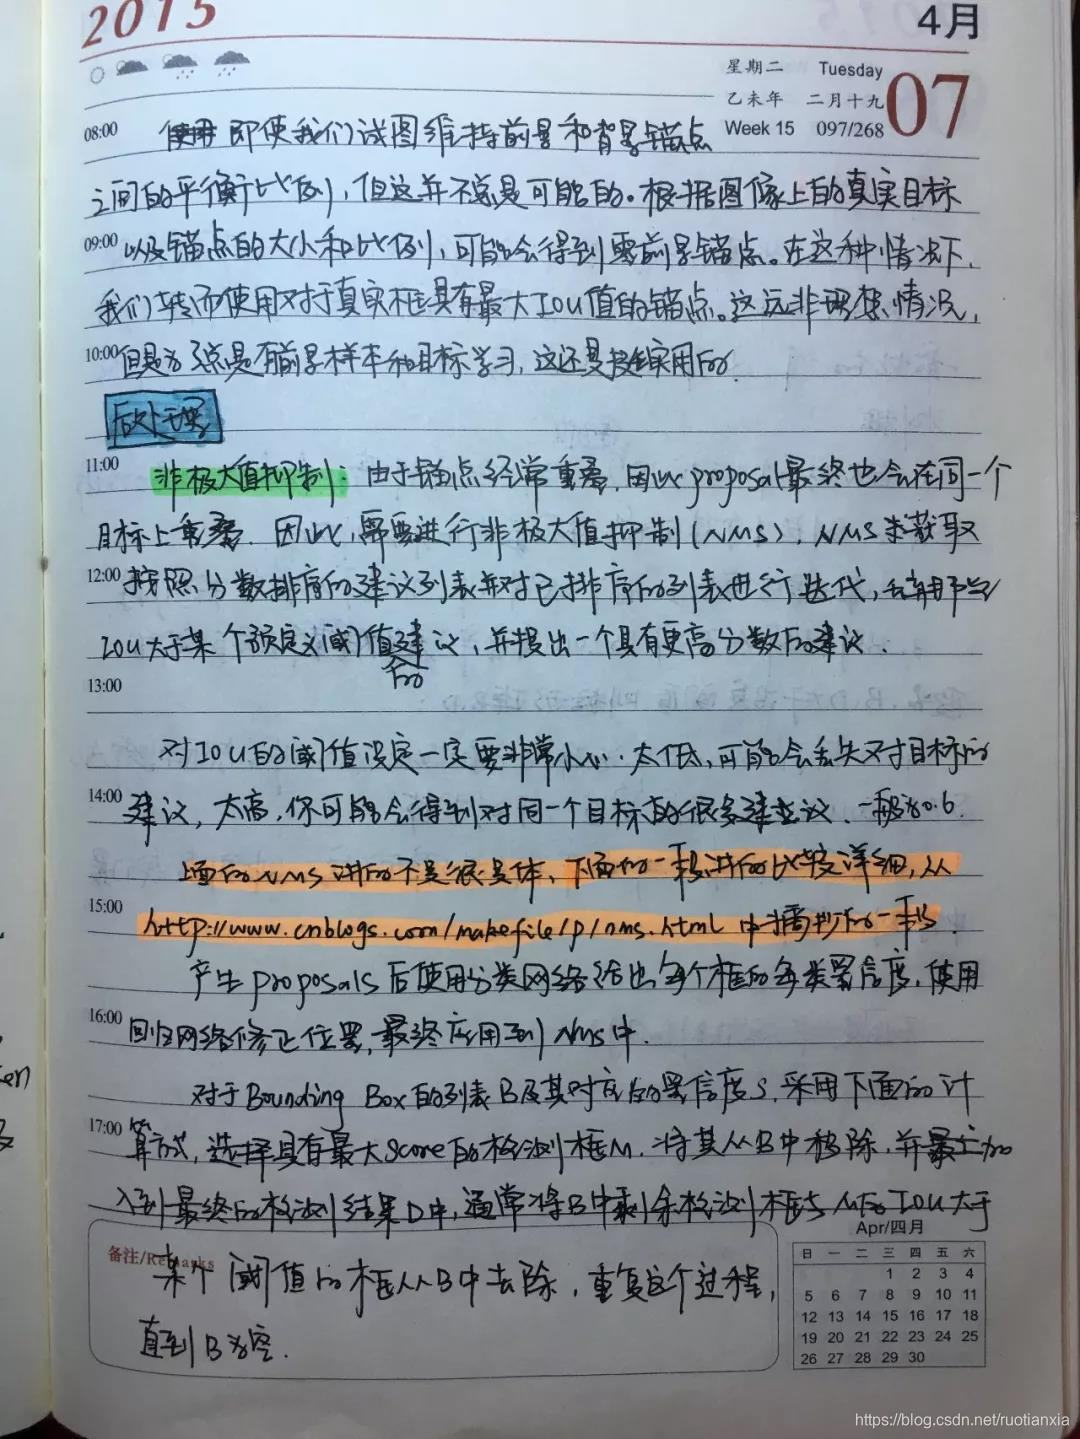 2015
4月
星期二 Tuesday
乙未年 二月十九
Week 15 097/268
07
08:00 即使我们试图维持前景和背景锚点
之间的平衡比例，但这并不总是可能的。根据图像上的真实目标
09:00 以及锚点的大小和比例，可能会得到零前景锚点。在这种情况下，
我们转而使用对于真实框具有最大IOU值的锚点。这远非理想情况，
10:00 但是为了总是有前景样本和目标学习，这还是挺实用的.
后处理
11:00 非极大值抑制: 由于锚点经常重叠，因此proposal最终也会在同一个
目标上重叠. 因此，需要进行非极大值抑制(NMS). NMS 获取
12:00 按照分数排序的建议列表并对已排序的列表进行迭代，丢弃那些
IOU大于某个预定义阈值的建议，并提出一个具有更高分数的建议.
13:00
对IOU的阈值设定一定要非常小心. 太低，可能会丢失对目标的
14:00 建议，太高，你可能会得到对同一个目标的很多建议. 一般为0.6.
上面的NMS讲的不是很具体，下面的一段讲的比较详细，从
15:00 http://www.cnblogs.com/makefile/p/nms.html 中摘抄的一段.
产生proposals后使用分类网络给出每个框的每类置信度，使用
16:00 回归网络修正位置，最终应用到Nms中.
对于Bounding Box的列表B及其对应的置信度S，采用下面的计
17:00 算方式，选择具有最大score的检测框M，将其从B中移除，并加
入到最终的检测结果D中，通常将B中剩余检测框与M的IOU大于
Apr/四月
备注/Remarks
某个阈值的框从B中去除，重复这个过程，
直到B为空.
日 一 二 三 四 五 六
1 2 3 4
5 6 7 8 9 10 11
12 13 14 15 16 17 18
19 20 21 22 23 24 25
26 27 28 29 30
https://blog.csdn.net/ruotianxia